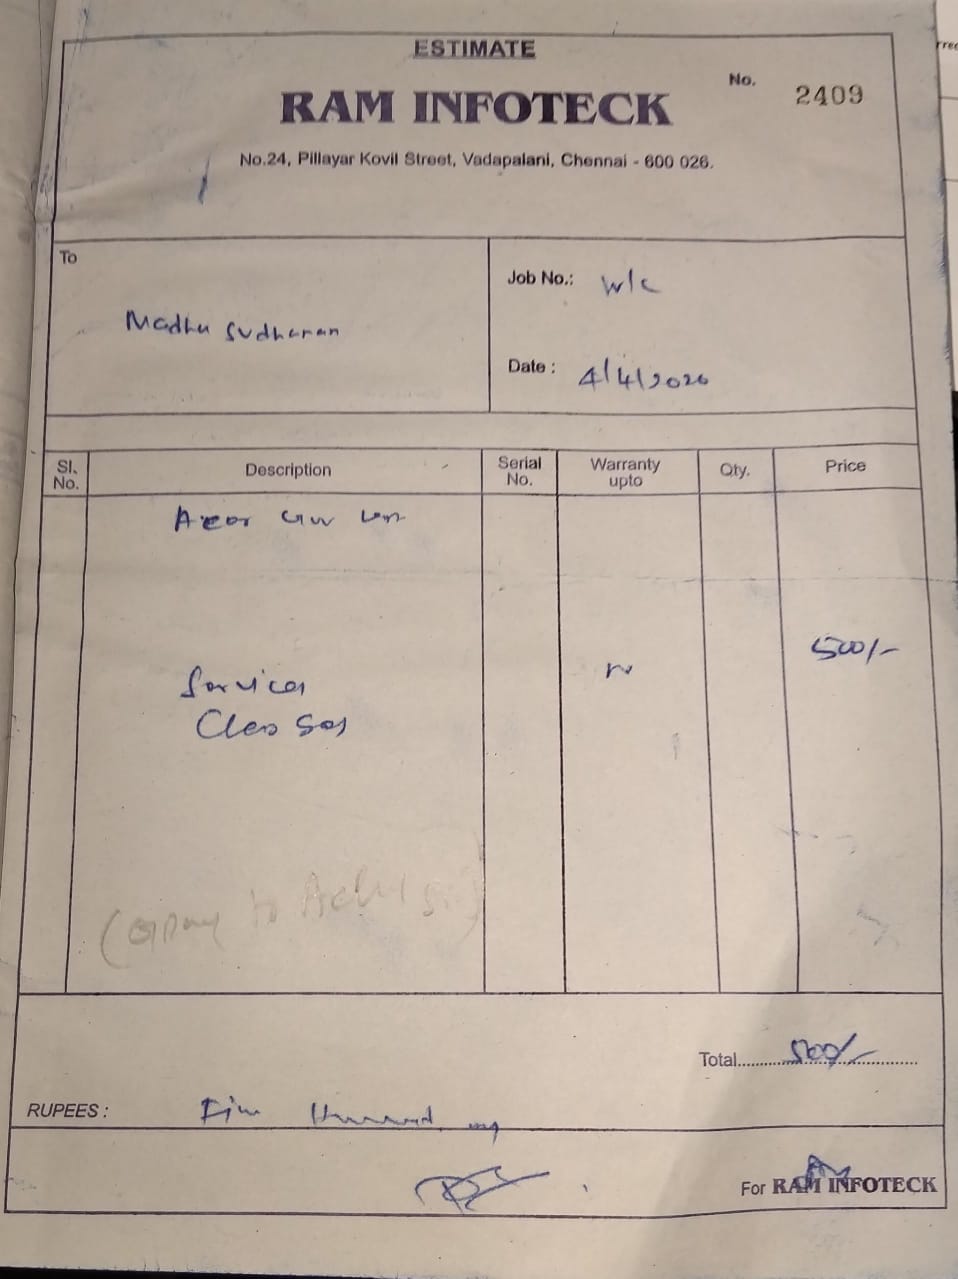 ESTIMATE
No. 2409
RAM INFOTECK
No.24, Pillayar Kovil Street, Vadapalani, Chennai - 600 026.
To
Madhu Sudharan
Job No.: w/c
Date : 4/4/2020
Sl. No. Description Serial No. Warranty upto Qty. Price
500/-
Services
(Gpay to
Total 500/-
RUPEES : Five Hundred only
For RAM INFOTECK